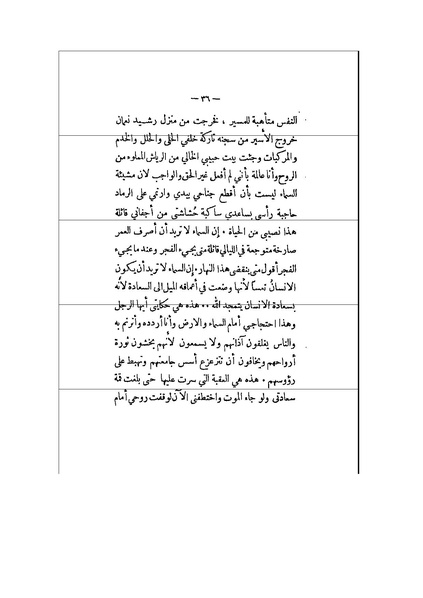 — ٣٦ —
النفس متأهبة للمسير ، فخرجت من منزل رشيد نعمان
خروج الأسير من سجنه تاركة خلفي الحلى والحلل والخدم
والمركبات وجئت بيت حبيبي الخالي من الرياش المملوء من
الروح وأنا عالمة بأنني لم أفعل غير الحق والواجب لان مشيئة
السماء ليست بأن أقطع جناحي بيدي وارتمي على الرماد
حاجبة رأسي بساعدي ساكبة حشاشتي من أجفاني قائلة
هذا نصيبي من الحياة . إن السماء لا تريد أن أصرف العمر
صارخة متوجعة في الليالي قائلة متى يجيء الفجر وعند ما يجيء
الفجر أقول متى ينقضي هذا النهار . إن السماء لا تريد أن يكون
الانسان تعساً لأنها وضعت في أعماقه الميل الى السعادة لأنه
بسعادة الانسان يتمجد الله .. هذه هي حكايتي أيها الرجل
وهذا احتجاجي أمام السماء والارض وأنا أردده وأترنم به
والناس يغلقون آذانهم ولا يسمعون لانهم يخشون ثورة
أرواحهم ويخافون أن تتزعزع أسس جامعتهم وتهبط على
رؤوسهم . هذه هي العقبة التي سرت عليها حتى بلغت قمة
سعادتي ولو جاء الموت واختطفني الآن لوقفت روحي أمام